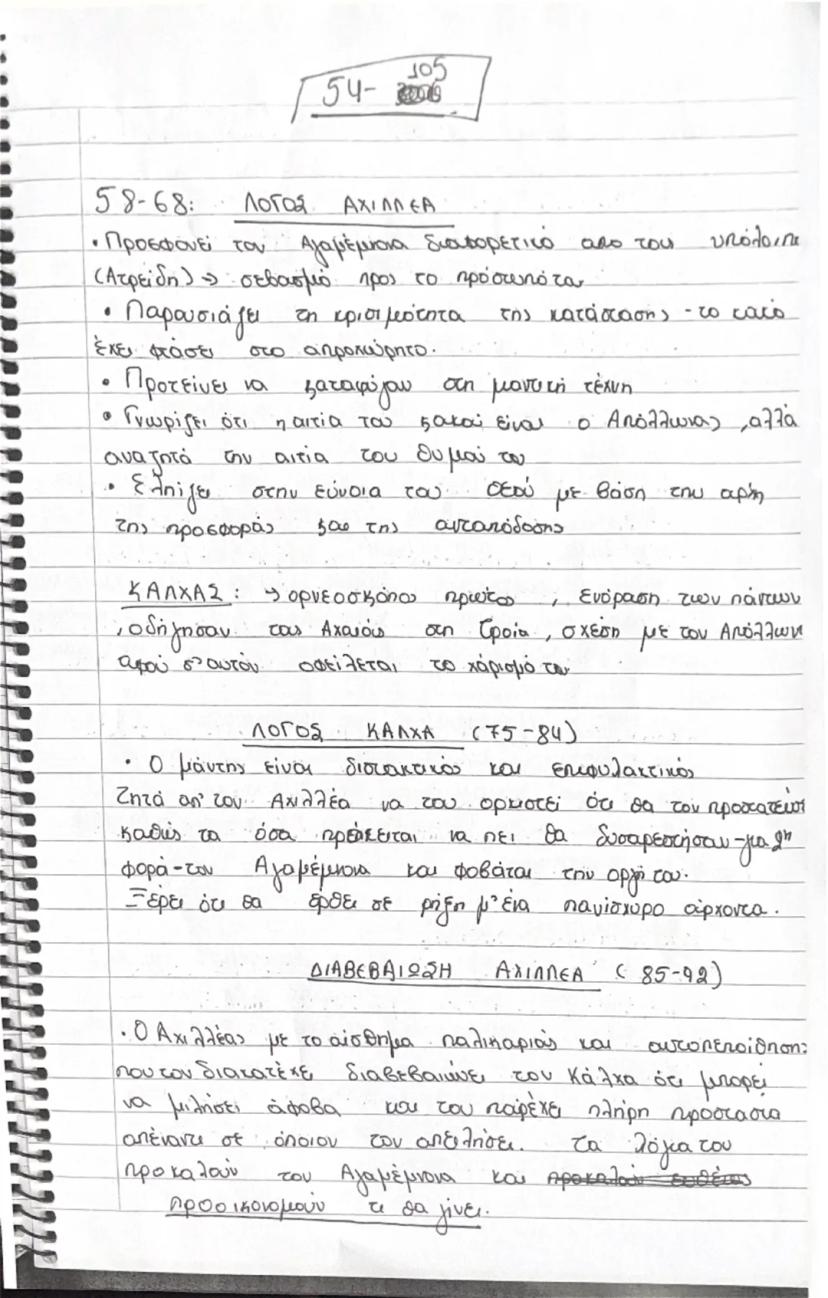 54- 105
58-68: ΛΟΓΟΣ ΑΧΙΛΛΕΑ
• Προσφωνεί τον Αγαμέμνονα διαφορετικά απο τους υπόλοιπ
(Ατρείδη) → σεβασμό προς το πρόσωπό του
• Παρουσιάζει τη κρισιμότητα της κατάστασης - το κακό
έχει φτάσει στο απροχώρητο.
• Προτείνει να καταφύγουν στη μαντική τέχνη
• Γνωρίζει ότι η αιτία του κακού είναι ο Απόλλωνας, αλλά
αναζητά την αιτία του θυμού του
• Ελπίζει στην εύνοια του θεού με βάση την αρχή
της προσφοράς και της ανταπόδοσης
ΚΑΛΧΑΣ: → ορνεοσκόπος πρώτος, ενόραση των πάντων
, οδήγησαν τους Αχαιούς στη Τροία, σχέση με τον Απόλλων
αφού σ'αυτόν οφείλεται το χάρισμά του
ΛΟΓΟΣ ΚΑΛΧΑ (75-84)
• Ο μάντης είναι διστακτικός και επιφυλακτικός
Ζητά απ' τον Αχιλλέα να του ορκιστεί ότι θα τον προστατεύσει
καθώς τα όσα πρόκειται να πει θα δυσαρεστήσουν -για 2η
φορά- τον Αγαμέμνονα και φοβάται την οργή του.
Ξέρει ότι θα έρθει σε ρήξη μ'ένα πανίσχυρο άρχοντα.
ΔΙΑΒΕΒΑΙΩΣΗ ΑΧΙΛΛΕΑ (85-92)
• Ο Αχιλλέας με το αίσθημα παλικαριάς και αυτοπεποίθησης
που τον διακατέχει διαβεβαιώνει τον Κάλχα ότι μπορεί
να μιλήσει άφοβα και του παρέχει πλήρη προστασία
απέναντι σε όποιον τον απειλήσει. Τα λόγια του
προκαλούν τον Αγαμέμνονα και προκαλούν
προοικονομούν τι θα γίνει.